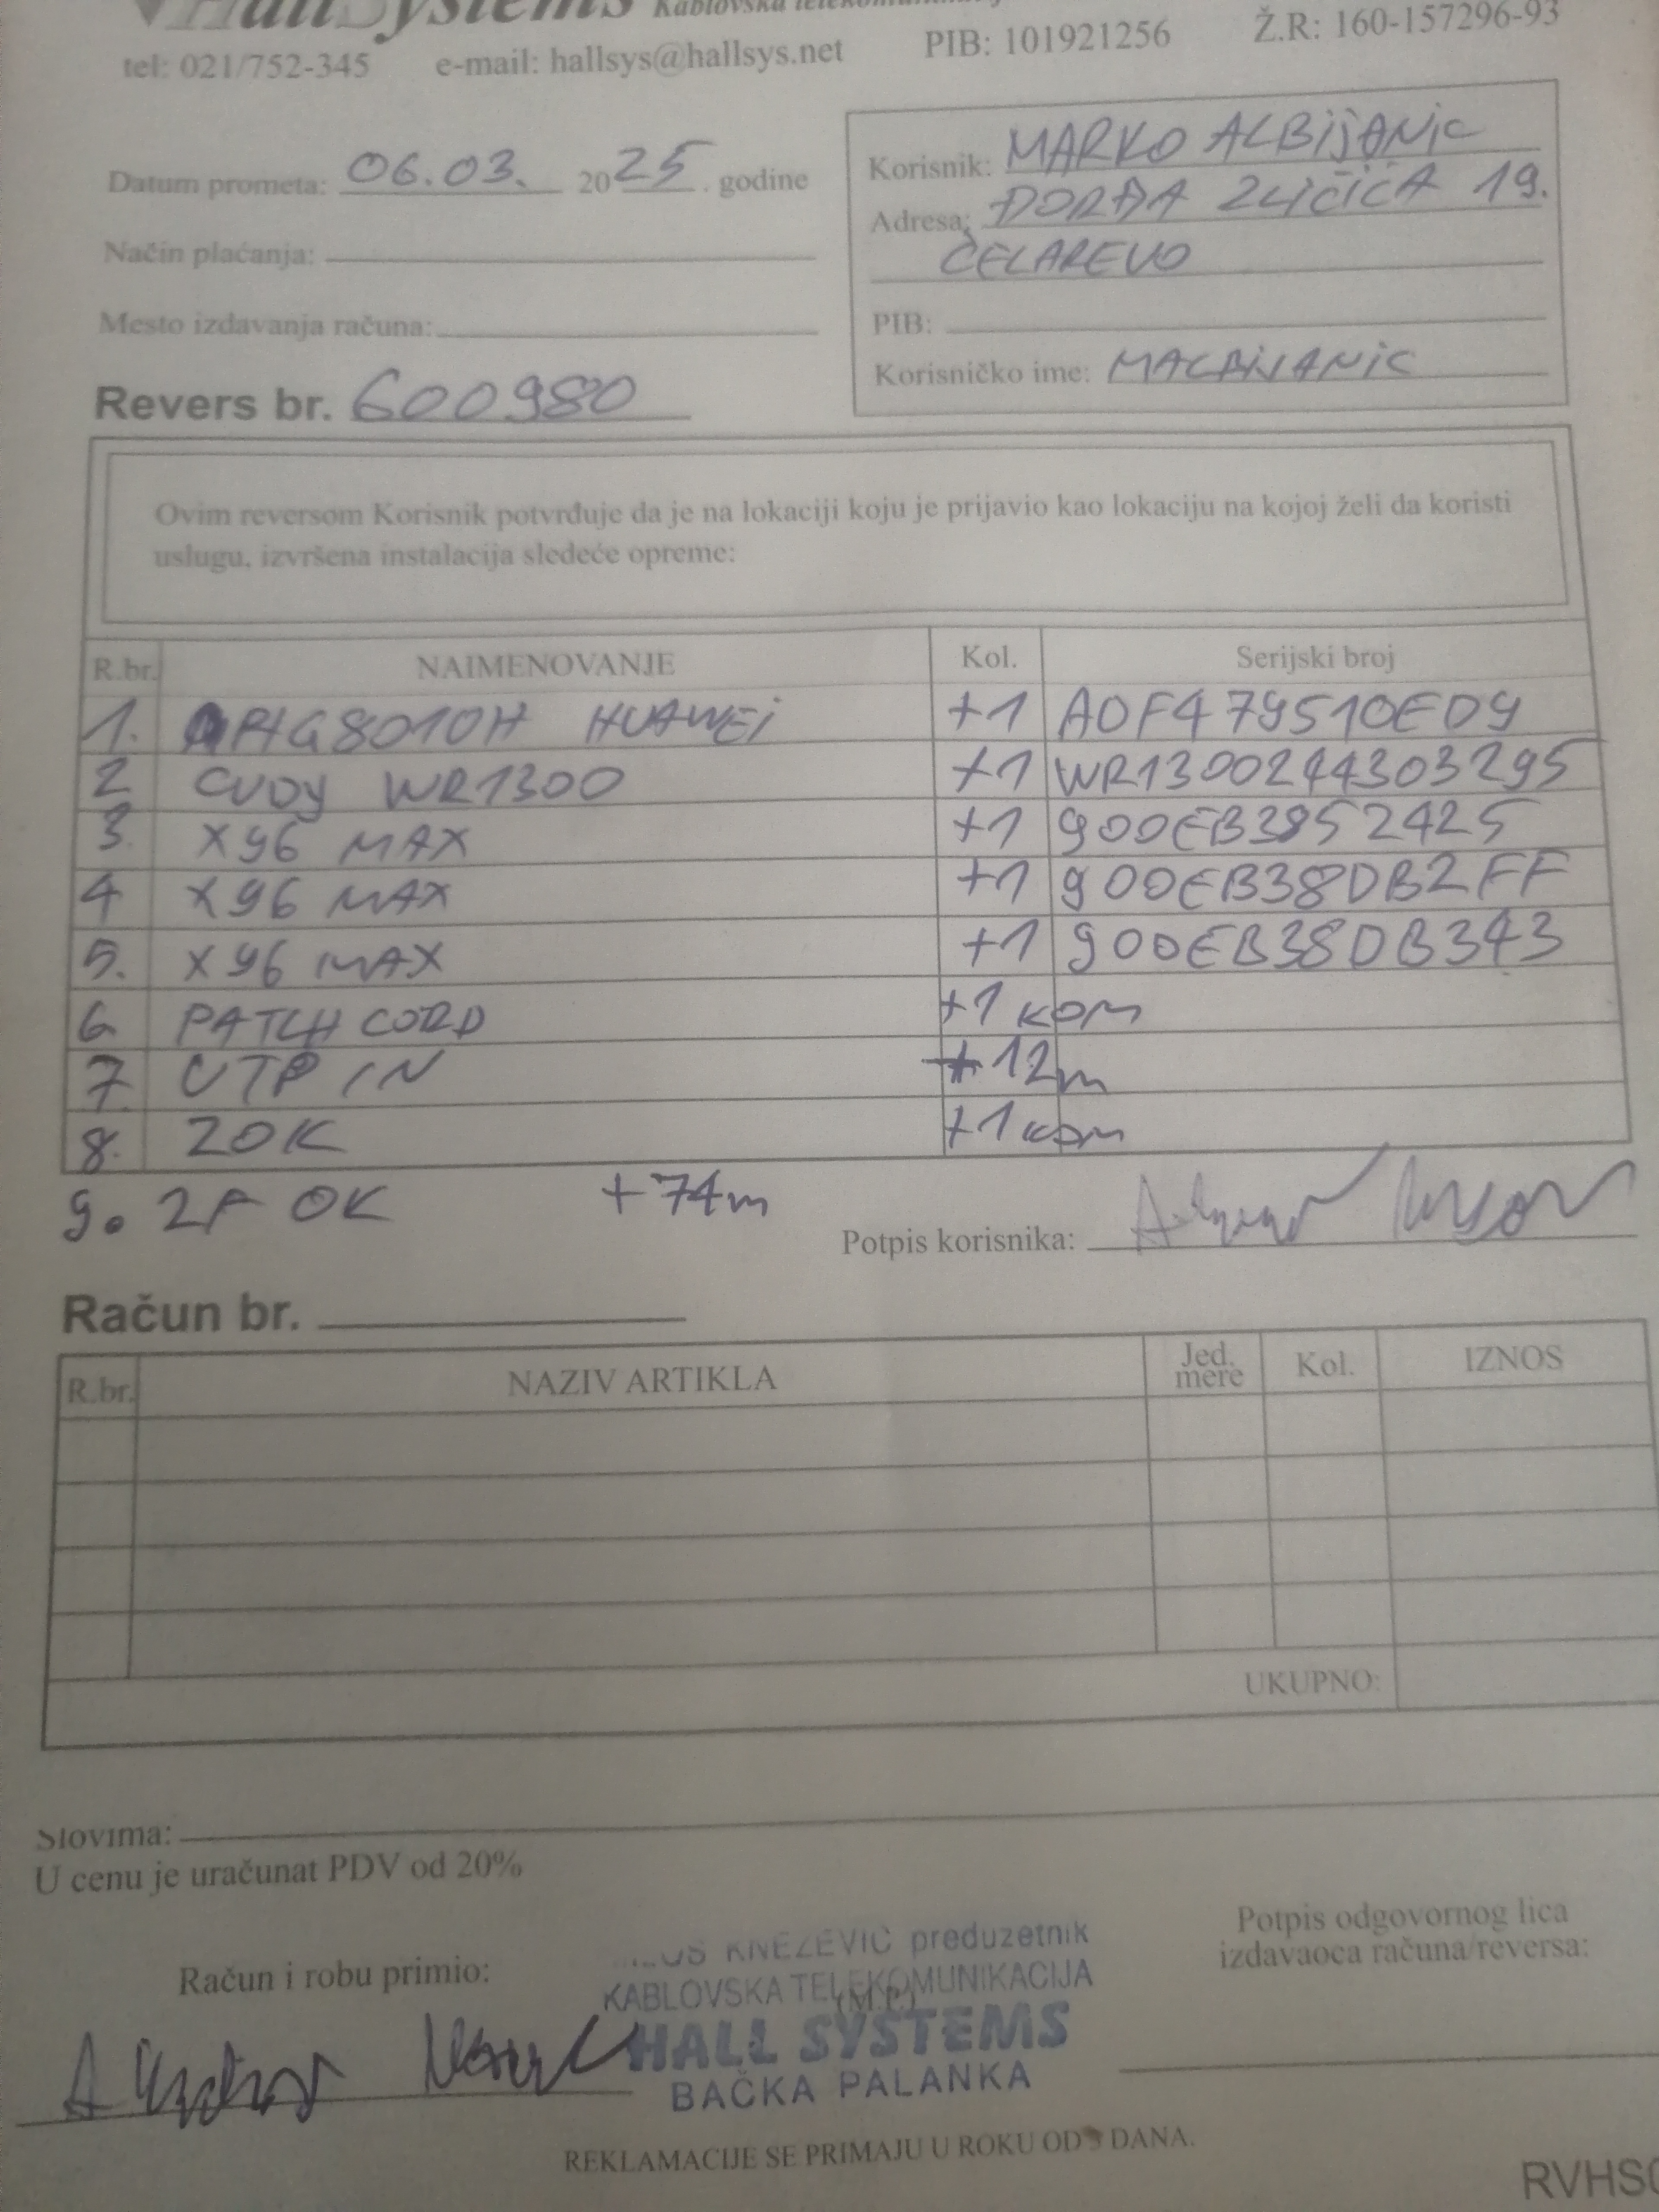 HallSystems Kablovska
tel: 021/752-345 e-mail: hallsys@hallsys.net PIB: 101921256 Ž.R: 160-157296-93
Datum prometa: 06.03. 2025. godine
Korisnik: MARKO ALBIJANIC
Adresa: ĐORĐA ZLIČIĆA 19.
ČELAREVO
Način plaćanja:
Mesto izdavanja računa:
PIB:
Korisničko ime: MALBIJANIC
Revers br. 600980
Ovim reversom Korisnik potvrđuje da je na lokaciji koju je prijavio kao lokaciju na kojoj želi da koristi
uslugu, izvršena instalacija sledeće opreme:
R.br. NAIMENOVANJE Kol. Serijski broj
1. HG8010H HUAWEI +1 A0F479510ED9
2 CUDY WR1300 +1 WR1300244303295
3. X96 MAX +1 900EB3852425
4 X96 MAX +1 900EB38DB2FF
5. X96 MAX +1 900EB38DB343
6 PATCH CORD +1 KOM
7. UTP IN +12m
8. ZOK +1 KOM
9. 2F OK +74m
Potpis korisnika:
Račun br.
R.br. NAZIV ARTIKLA Jed. mere Kol. IZNOS
UKUPNO:
Slovima:
U cenu je uračunat PDV od 20%
Račun i robu primio:
KNEŽEVIĆ preduzetnik
KABLOVSKA TELEKOMUNIKACIJA
(M.P.)
HALL SYSTEMS
BAČKA PALANKA
Potpis odgovornog lica
izdavaoca računa/reversa:
REKLAMACIJE SE PRIMAJU U ROKU OD DANA.
RVHS